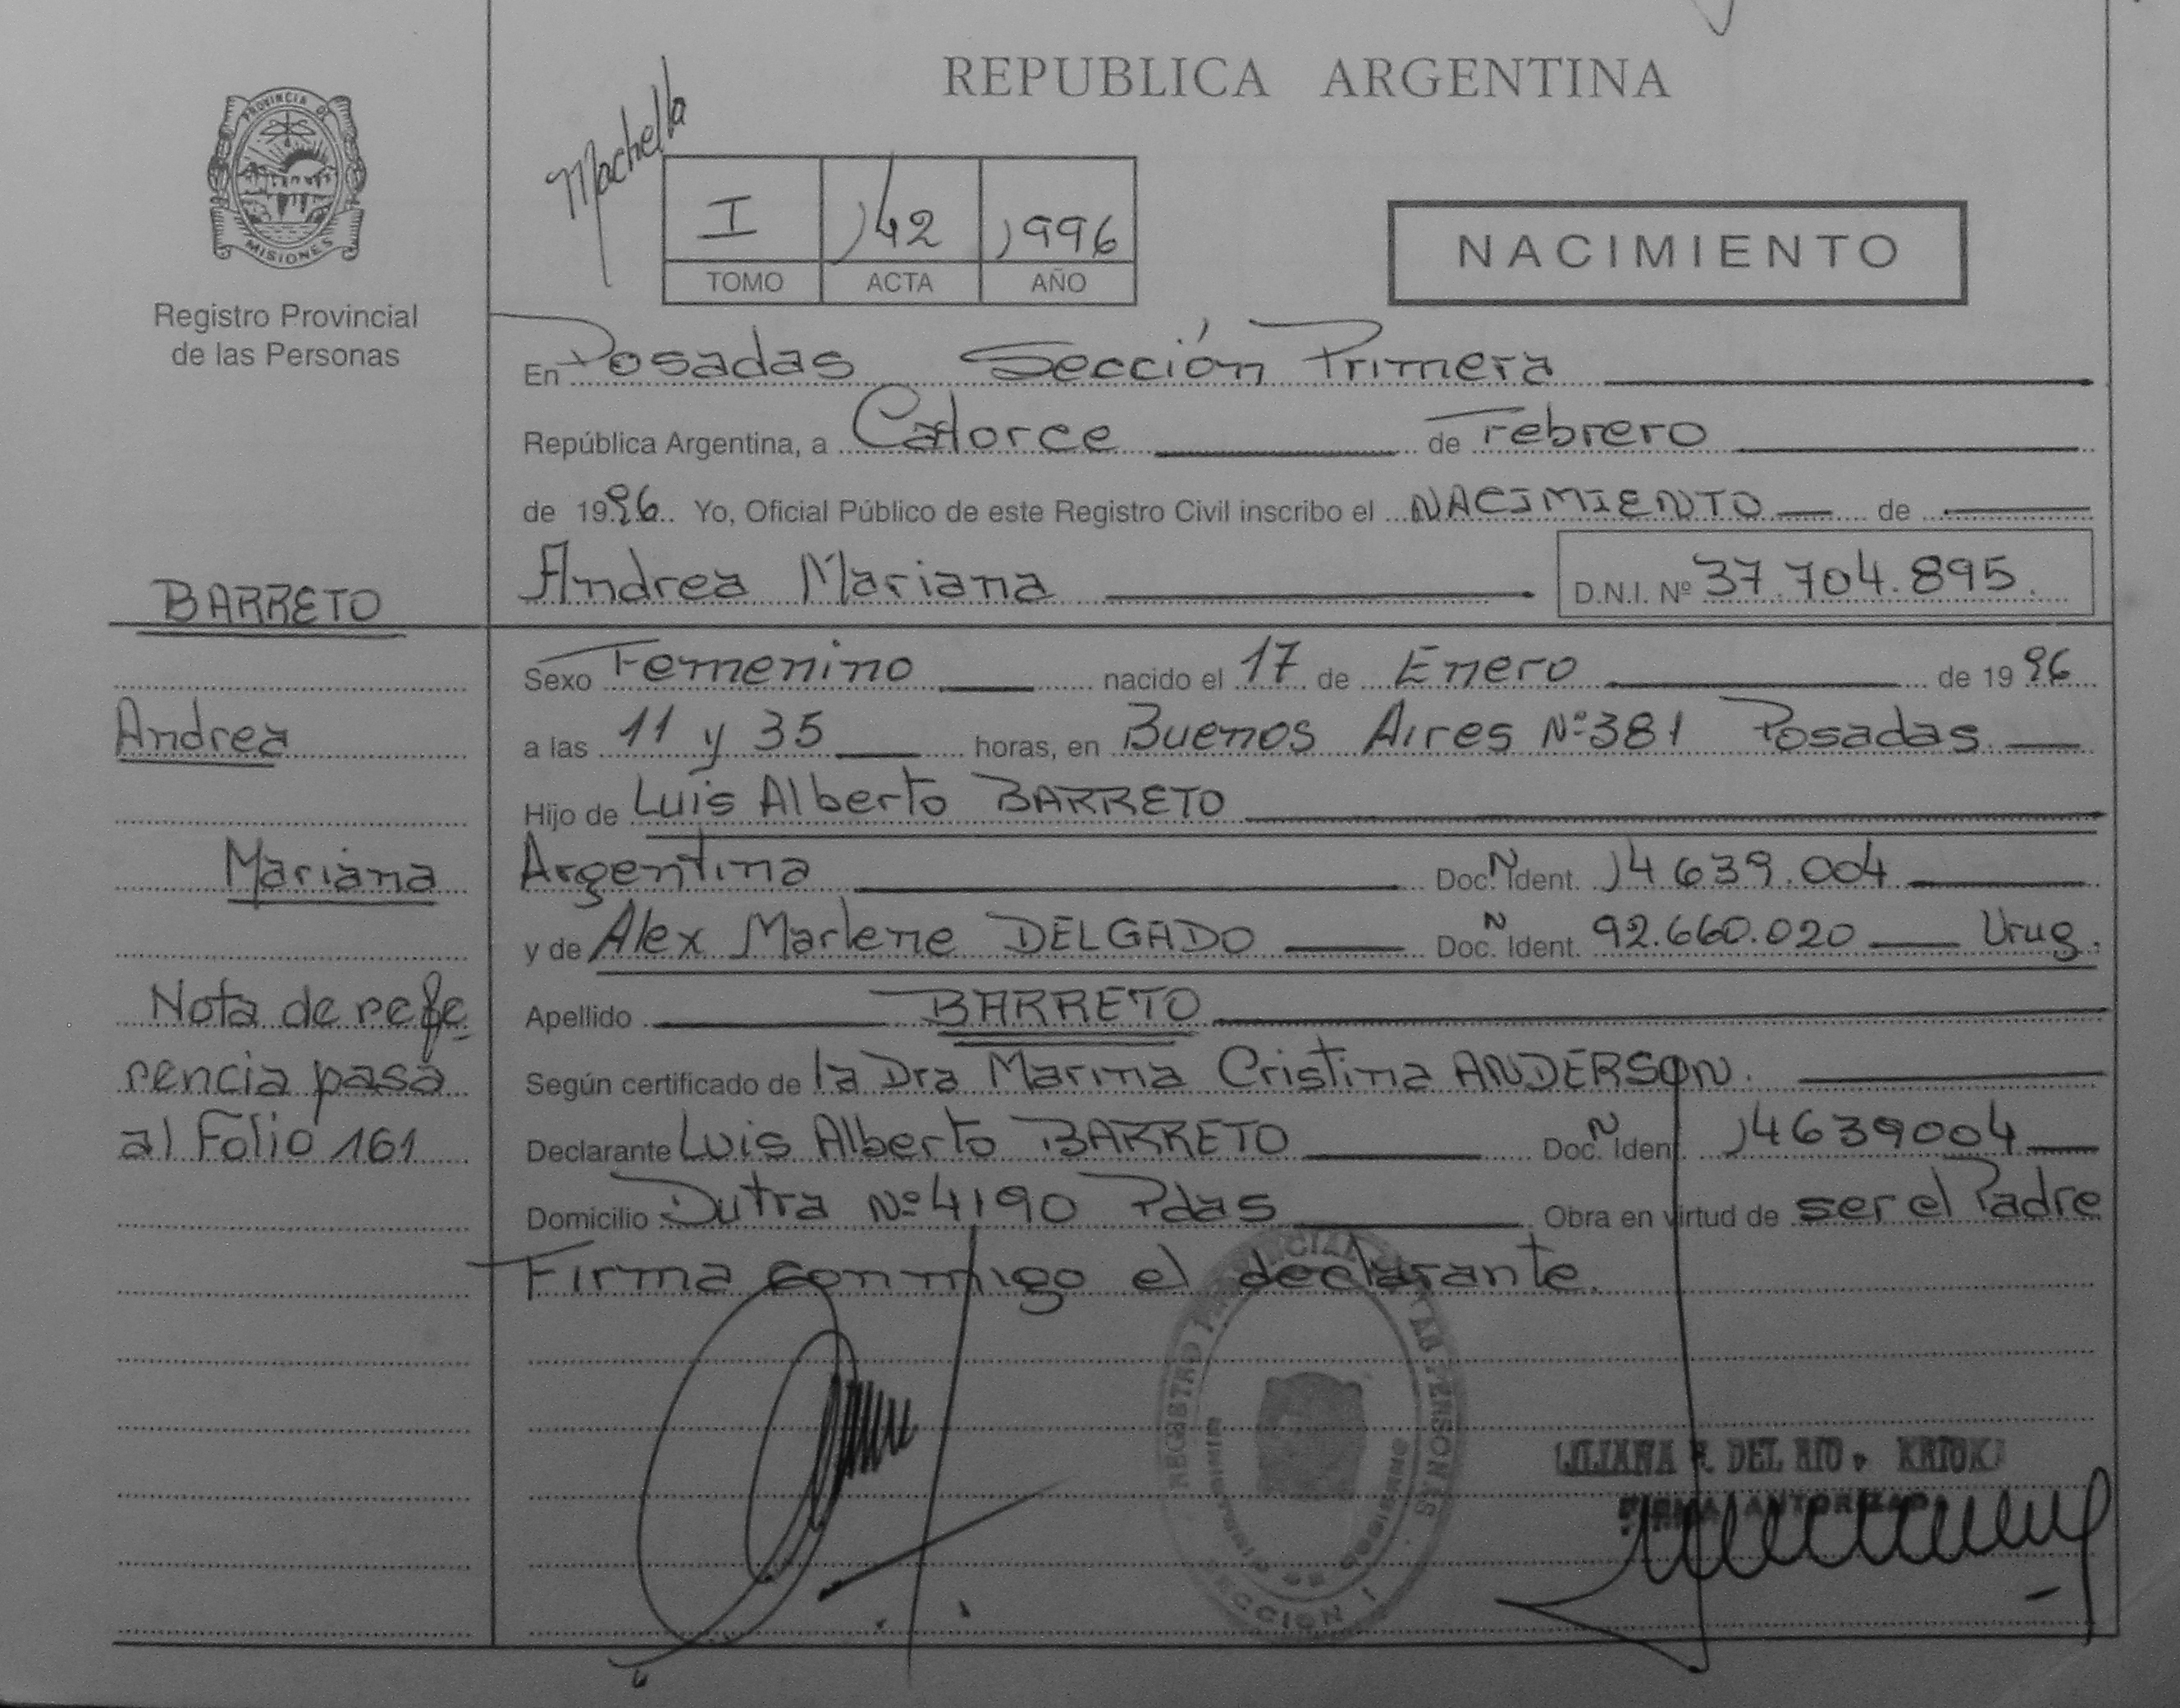 REPUBLICA ARGENTINA
PROVINCIA DE
MISIONES
Registro Provincial
de las Personas
Machella
I 142 1996
TOMO ACTA AÑO
NACIMIENTO
En Posadas Sección Primera
República Argentina, a Catorce de Febrero
de 1996. Yo, Oficial Público de este Registro Civil inscribo el NACIMIENTO de
BARRETO
Andrea Mariana D.N.I. Nº 37.704.895.
Sexo Femenino nacido el 17 de Enero de 1996
Andrea
a las 11 y 35 horas, en Buenos Aires Nº 381 Posadas
Hijo de Luis Alberto BARRETO
Mariana
Argentina Doc. N Ident. 14639.004
y de Alex Marlene DELGADO Doc. N Ident. 92.660.020 Urug.
Nota de refe
Apellido BARRETO
rencia pasa
Según certificado de la Dra Marina Cristina ANDERSON.
al Folio 161
Declarante Luis Alberto BARRETO Doc. N Ident. 14639004
Domicilio Dutra Nº 4190 Pdas Obra en virtud de ser el Padre
Firma conmigo el declarante.
REGISTRO PROVINCIAL DE LAS PERSONAS
SECCION I
LILIANA DEL RIO
FIRMA AUTORIZADA